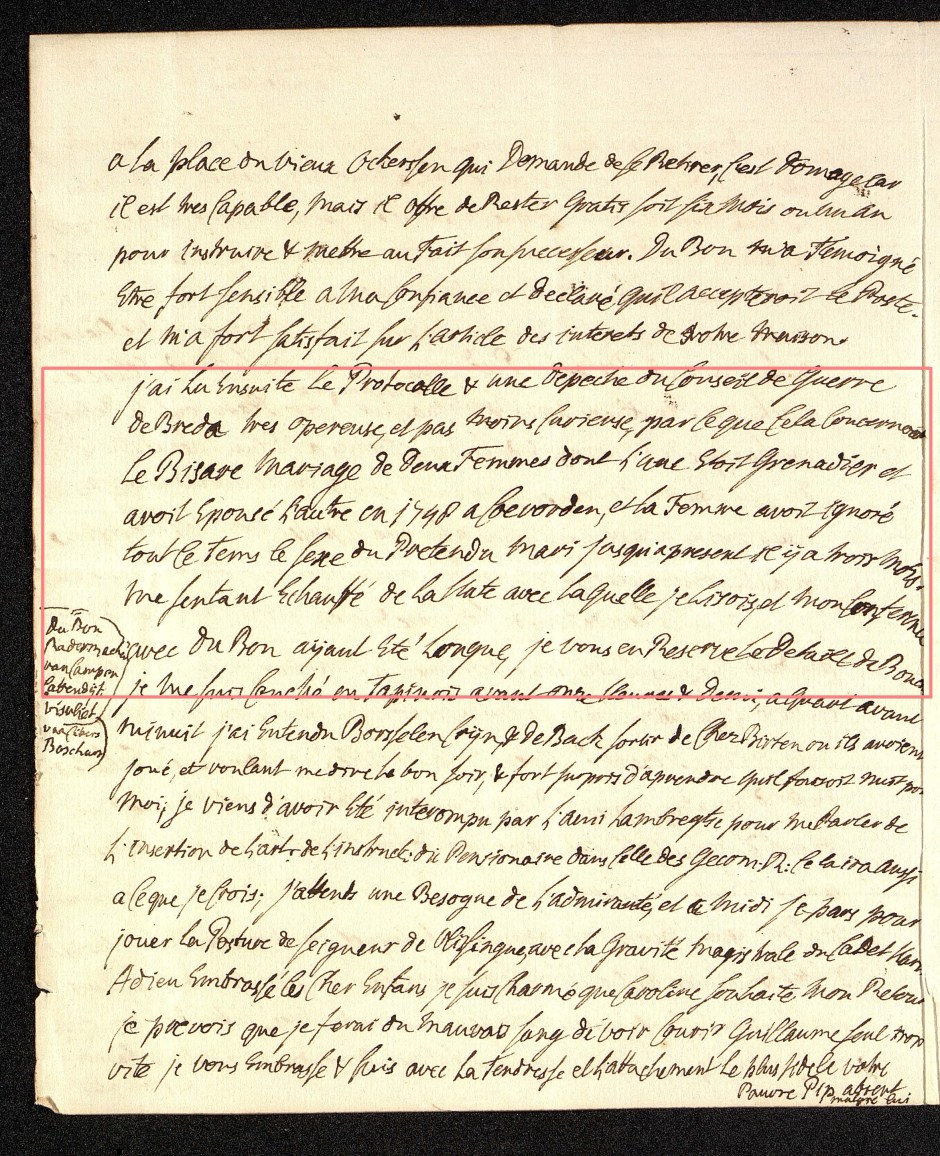 a la place du vieux Ockerssen qui Demande de se Retirer, C'est Domage Car
il est tres Capable, mais il offre de Rester Gratis soit six mois ou un an
pour instruire & mettre au Fait son successeur. Du Bon m'a Temoigné
Etre fort sensible a ma Confiance et declaré qu'il accepteroit le Poste
et m'a fort satisfait sur l'article des interets de notre maison.
j'ai Lu Ensuite Le Protocolle & une Depeche du Conseil de Guerre
de Breda tres opereuse, et pas moins Curieuse, par ce que Cela Concernoit
Le Bisare Mariage de deux Femmes dont l'une Etoit Grenadier et
avoit Epousé L'autre en 1748 a Coevorden, et la Femme avoit ignoré
tout le Tems le sexe du Pretendu mari jusqu'apresent il ij a trois Mois.
me sentant Echauffé de la Hate avec laquelle je Lisois, et mon Conference
avec du Bon aijant Eté Longue, je vous en Reserve Le Detail, de Bouche
je me suis Couché en Tapinois avant onze Heures & Demi, a quart avant
minuit j'ai Entendu Borsselen Crijn & de Back sortir de Chez Pirten ou ils avoient
joué, et voulant me dire Le bon soir, & fort surpris d'aprendre qu'il faisoit nuit pour
Moi; je viens d'avoir Eté interompu par L'ami Lambregtse pour me Parler de
L'insertion de L'art. de L'instruct: du Pensionaire dans Celle des Gecom: R: Cela ira aussi
a Ce que je Crois; j'attends une Besogne de L'admirauté, et a Midi je pars pour
jouer La Posture de seigneur de Vlissingue, avec La Gravité magistrale du Cadet
Adieu Embrassé les Cher Enfans je suis Charmé que Caroline souhaite mon Retour
je prevois que je ferai du mauvais sang de voir Courir Guillaume seul trop
vite je vous Embrasse & suis avec La Tendresse et L'attachement Le plus fidele votre
Pauvre Pip absent
malgré lui
Du Bon
Radermacher
van Campen
Lattendijt
Visvliet
Boschaert